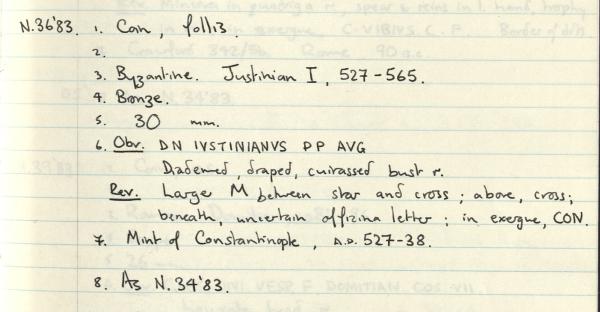 N.36'83. 1. Coin, follis.
2.
3. Byzantine. Justinian I, 527-565.
4. Bronze.
5. 30 mm.
6. Obv. DN IVSTINIANVS PP AVG
Diademed, draped, cuirassed bust r.
Rev. Large M between star and cross; above, cross;
beneath, uncertain offizina letter; in exergue, CON.
7. Mint of Constantinople, A.D. 527-38.
8. As N.34'83.